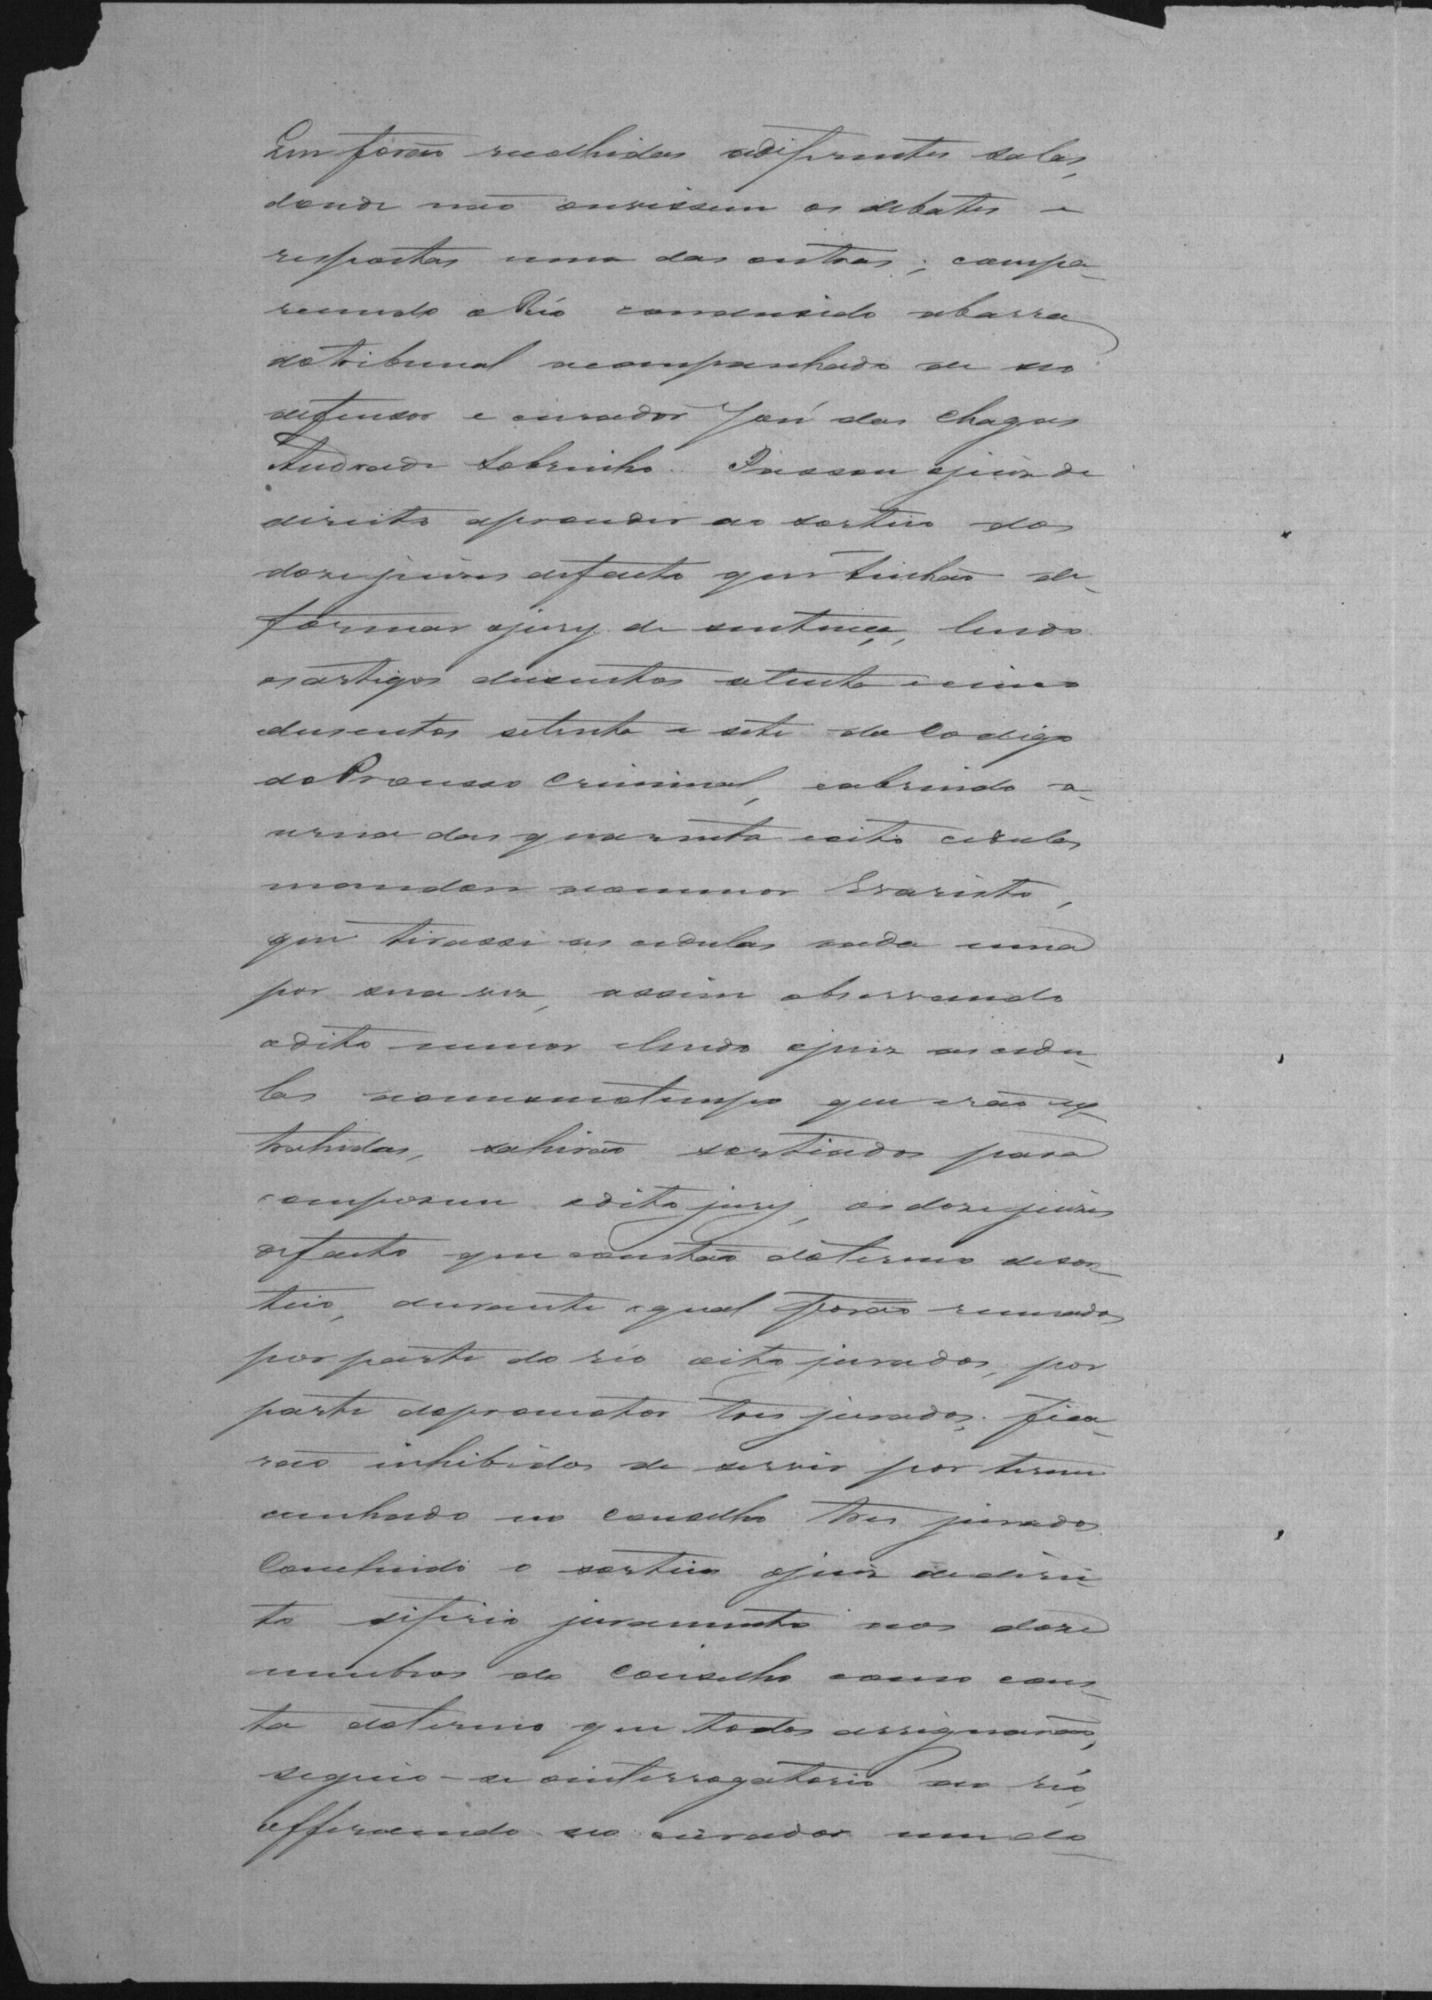 que forão recolhidas adifferentes salas,
donde não ouvissem os debates e
respostas umas das outras; compa-
recendo o Réo conduzido abarra
dotribunal acompanhado de seo
defensor e curador José das Chagas
Andrade Sobrinho. Passou ojuiz de
direito aproceder ao sorteio dos
doze juizes defacto que tinhão de
formar ojury de sentença, lendo
osartigos dusentos setenta e cinco
dusentos setenta e sete do Codigo
do Processo Criminal, eabrindo a
urna das quarenta eoito cedulas
mandou aomenor Evaristo,
que tirasse as cedulas cada uma
por sua vez, assim observando
odito menor elendo ojuiz as cedu-
las nomesmotempo que erão ex-
trahidas, sahirão sorteados para
comporem odito jury, os doze juizes
defacto que constão dotermo desor-
teio, durante oqual forão recusados
por parte do réo oito jurados, por
parte dopromotor tres jurados. fica-
rão inhibidos de servir por terem
cunhado no conselho tres jurados
Concluido o sorteio ojuiz dedirei-
to deferio juramento aos doze
membros do Conselho como cons-
ta dotermo que todos assignarão,
seguio-se ointerrogatorio ao réo,
offerecendo seo curador um do-